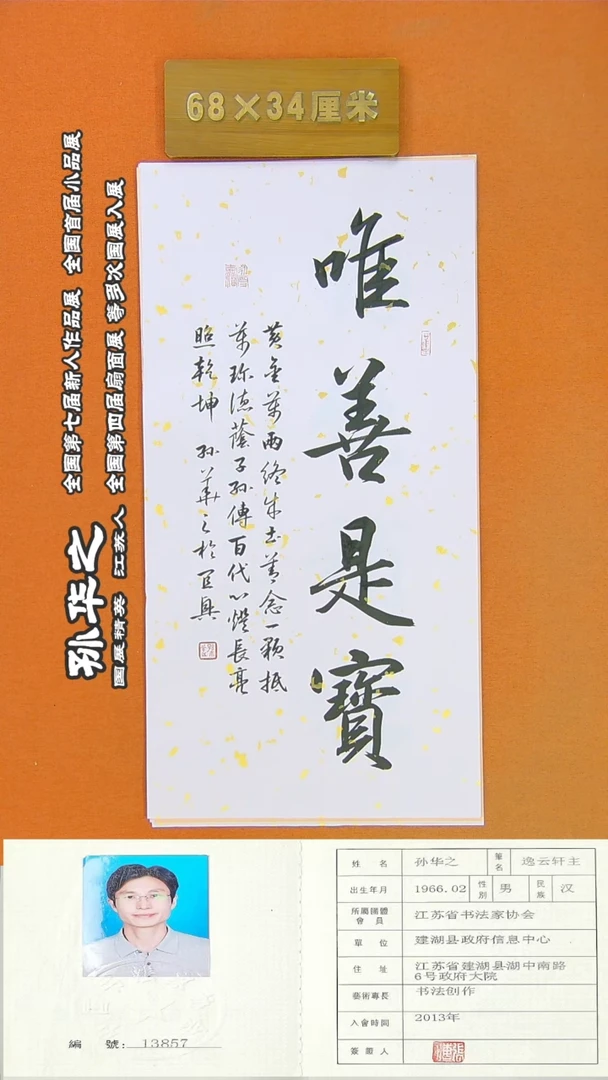 68×34厘米
全国第七届新人作品展 全国首届小品展
全国第四届扇面展 等多次国展入展
孙华之
国展精英 江苏人
唯善是寶
黄金万两终成土善念一颗抵
万珍德蔭子孙傳百代心燈長亮
照乾坤 孙華之於
姓 名 孙华之 筆名 逸云轩主
出生年月 1966.02 性別 男 民族 汉
所屬團體會員 江苏省书法家协会
單 位 建湖县政府信息中心
住 址 江苏省建湖县湖中南路
6号政府大院
藝術專長 书法创作
入會時間 2013年
簽證人
編 號: 13857